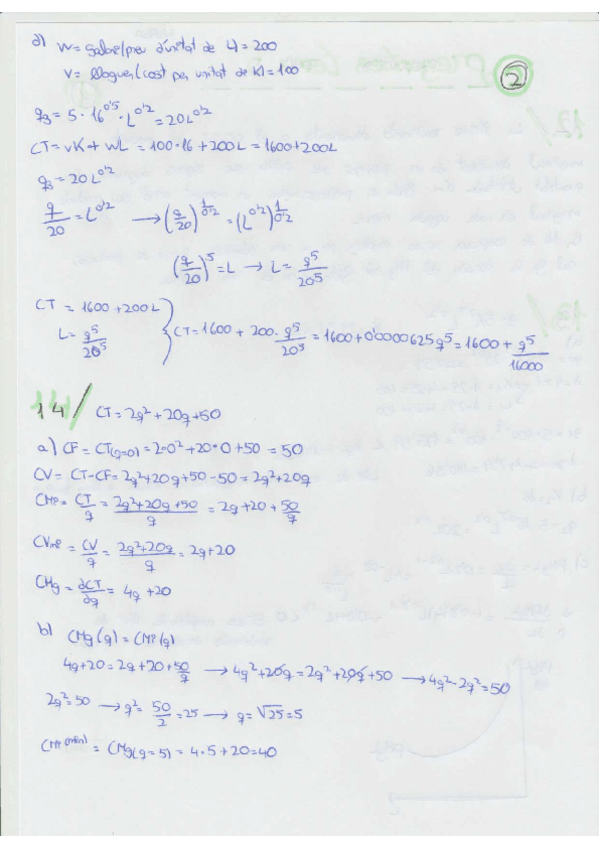 ②
d) W = salari/preu d'unitat de L) = 200
V = lloguer/cost per unitat de K) = 100
q₃ = 5 · 16^0'5 · L^0'2 = 20L^0'2
CT = vK + wL = 100·16 + 200L = 1600+200L
q₃ = 20L^0'2
q/20 = L^0'2 → (q/20)^(1/0'2) = (L^0'2)^(1/0'2)
(q/20)^5 = L → L = q^5/20^5
CT = 1600 + 200L
L = q^5/20^5 } CT = 1600 + 200 · q^5/20^5 = 1600 + 0'0000625q^5 = 1600 + q^5/16000
14/ CT = 2q² + 20q + 50
a) CF = CT(q=0) = 2·0² + 20·0 + 50 = 50
CV = CT-CF = 2q² + 20q + 50 - 50 = 2q² + 20q
CMe = CT/q = (2q² + 20q + 50)/q = 2q + 20 + 50/q
CVme = CV/q = (2q² + 20q)/q = 2q + 20
CMg = ∂CT/∂q = 4q + 20
b) CMg(q) = CMe(q)
4q + 20 = 2q + 20 + 50/q → 4q² + 20q = 2q² + 20q + 50 → 4q² - 2q² = 50
2q² = 50 → q² = 50/2 = 25 → q = √25 = 5
CMe(min) = CMg(q=5) = 4·5 + 20 = 40